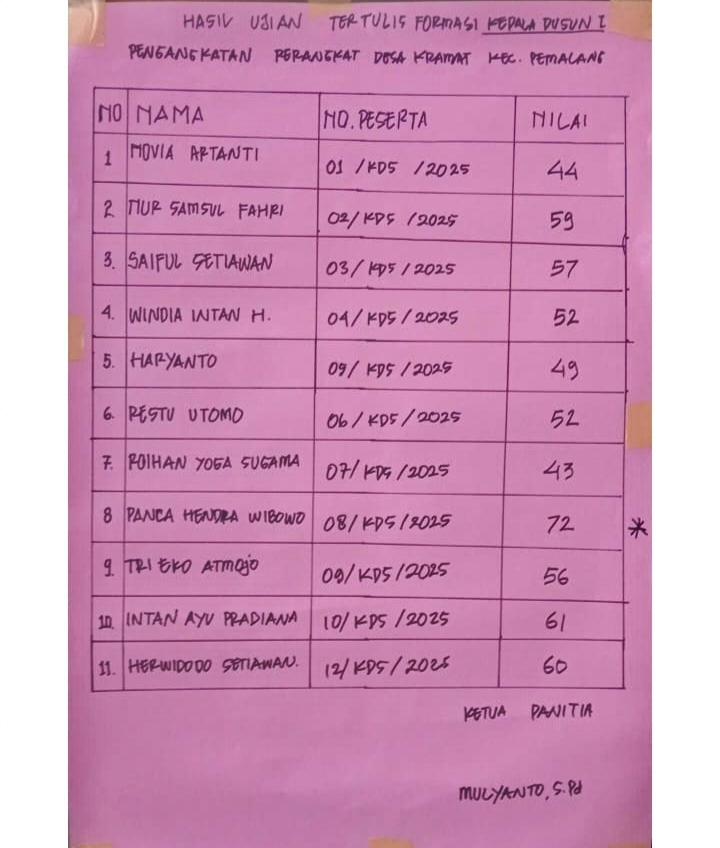 HASIL UJIAN TERTULIS FORMASI KEPALA DUSUN I
PENGANGKATAN PERANGKAT DESA KRAMAT KEC. PEMALANG
NO NAMA NO. PESERTA NILAI
1 NOVIA ARTANTI 01 /KDS /2025 44
2 NUR SAMSUL FAHRI 02/KDS /2025 59
3. SAIFUL SETIAWAN 03/KDS/2025 57
4. WINDIA INTAN H. 04/KDS/2025 52
5. HARYANTO 05/KDS/2025 49
6. RESTU UTOMO 06/KDS/2025 52
7. ROIHAN YOGA SUGAMA 07/KDS/2025 43
8 PANCA HENDRA WIBOWO 08/KDS/2025 72 *
9. TRI EKO ATMOJO 09/KDS/2025 56
10. INTAN AYU PRADIANA 10/KDS /2025 61
11. HERWIDODO SETIAWAN. 12/KDS/2025 60
KETUA PANITIA
MULYANTO, S.Pd